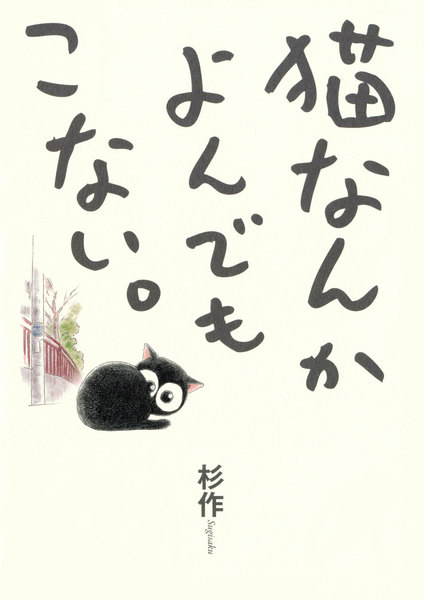 猫なんか
よんでも
こない。
杉作
Sugisaku